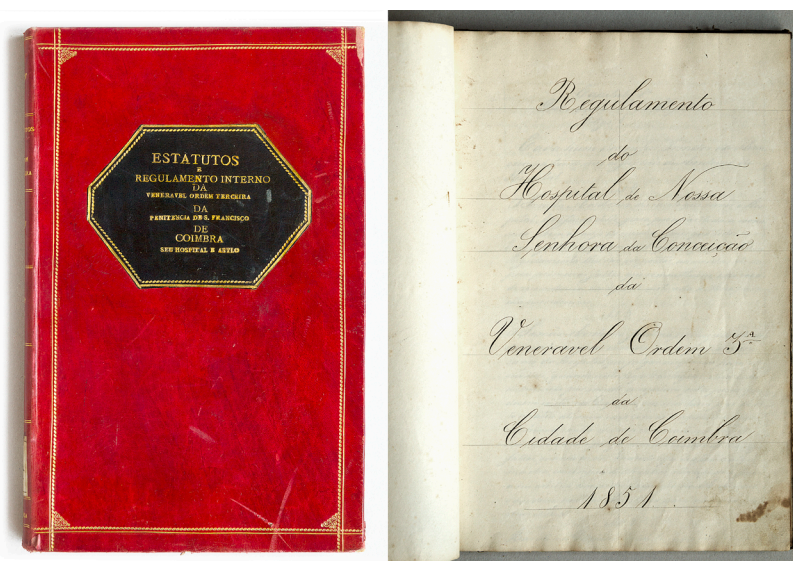 ESTATUTOS
E
REGULAMENTO INTERNO
DA
VENERAVEL ORDEM TERCEIRA
DA
PENITENCIA DE S. FRANCISCO
DE
COIMBRA
SEU HOSPITAL E ASYLO
Regulamento
do
Hospital de Nossa
Senhora da Conceição
da
Veneravel Ordem 3ª
da
Cidade de Coimbra
1851